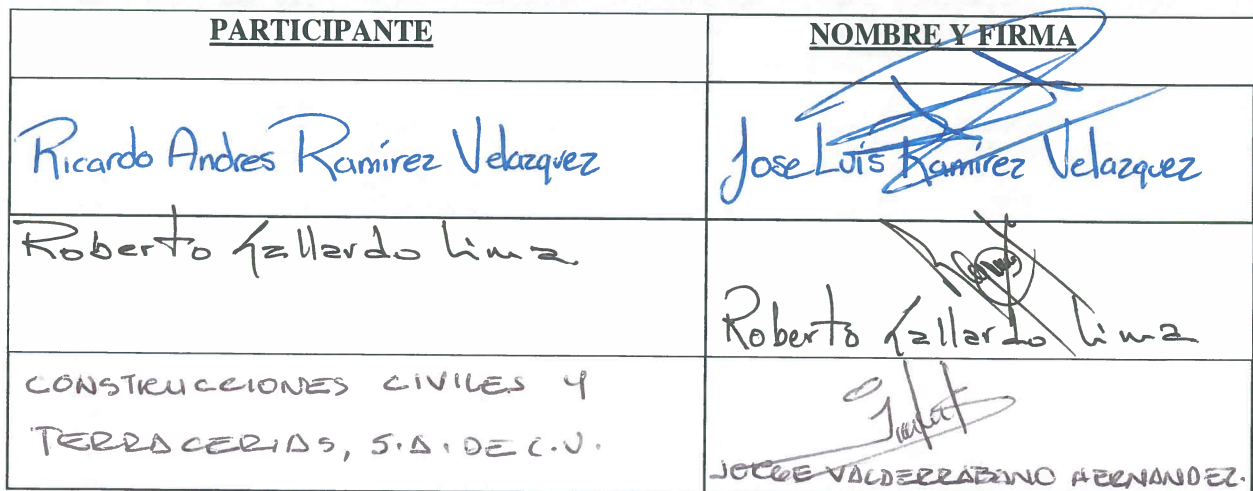 PARTICIPANTE
NOMBRE Y FIRMA
Ricardo Andres Ramírez Velazquez
Jose Luis Ramírez Velazquez
Roberto Gallardo Lima
Roberto Gallardo Lima
CONSTRUCCIONES CIVILES Y
TERRACERIAS, S.A. DE C.V.
JORGE VALDERRABANO HERNANDEZ.